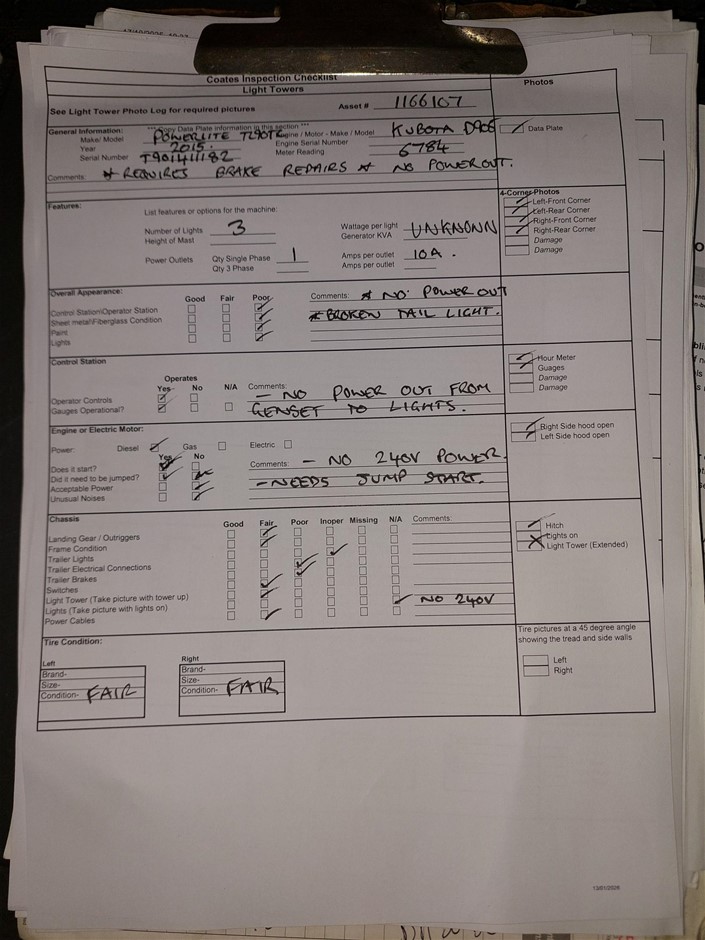 Coates Inspection Checklist
Light Towers
Photos
See Light Tower Photo Log for required pictures
Asset # 1166107
General Information: *** Copy Data Plate information in this section ***
Make/ Model POWERLITE Engine / Motor - Make / Model KUBOTA D905
Data Plate
Year 2015. Engine Serial Number
Serial Number T901411182 Meter Reading 6784
Comments: * REQUIRES BRAKE REPAIRS * NO POWER OUT.
4-Corner Photos
Left-Front Corner
Left-Rear Corner
Right-Front Corner
Right-Rear Corner
Damage
Damage
Features:
List features or options for the machine:
Number of Lights 3 Wattage per light UNKNOWN
Height of Mast Generator KVA
Power Outlets Qty Single Phase 1 Amps per outlet 10A.
Qty 3 Phase Amps per outlet
Overall Appearance:
Good Fair Poor Comments: * NO POWER OUT
Control Station\Operator Station * BROKEN TAIL LIGHT.
Sheet metal\Fiberglass Condition
Paint
Lights
Control Station
Hour Meter
Guages
Damage
Damage
Operates
Yes No N/A Comments: - NO POWER OUT FROM
Operator Controls
Gauges Operational? GENSET TO LIGHTS.
Engine or Electric Motor:
Right Side hood open
Left Side hood open
Power: Diesel Gas Electric
Yes No
Does it start? Comments: - NO 240V POWER.
Did it need to be jumped? - NEEDS JUMP START.
Acceptable Power
Unusual Noises
Chassis
Good Fair Poor Inoper Missing N/A Comments:
Hitch
Lights on
Light Tower (Extended)
Landing Gear / Outriggers
Frame Condition
Trailer Lights
Trailer Electrical Connections
Trailer Brakes
Switches
Light Tower (Take picture with tower up) NO 240V
Lights (Take picture with lights on)
Power Cables
Tire Condition:
Tire pictures at a 45 degree angle
showing the tread and side walls
Left
Right
Left
Brand-
Size-
Condition- FAIR
Right
Brand-
Size-
Condition- FAIR
13/01/2026